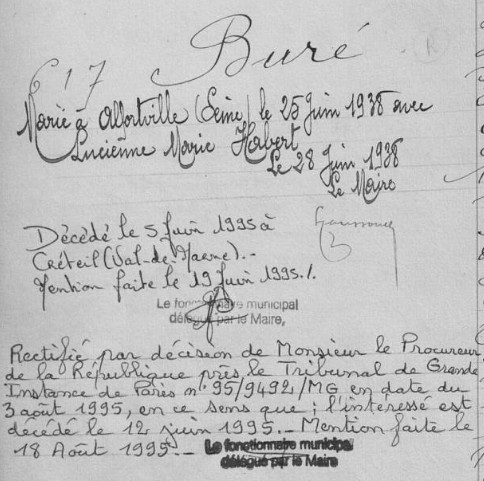 Buré
617
Marié à Alfortville (Seine) le 25 juin 1938 avec
Lucienne Marie Habert
Le 28 Juin 1938
Le Maire
Décédé le 5 Juin 1995 à
Créteil (Val-de-Marne).-
Mention faite le 19 Juin 1995./.
Le fonctionnaire municipal
délégué par le Maire,
Rectifié par décision de Monsieur le Procureur
de la République près le Tribunal de Grande
Instance de Paris n° 95/9492/MG en date du
3 août 1995, en ce sens que ; l'intéressé est
décédé le 12 juin 1995._ Mention faite le
18 Août 1995._ Le fonctionnaire municipal
délégué par le Maire